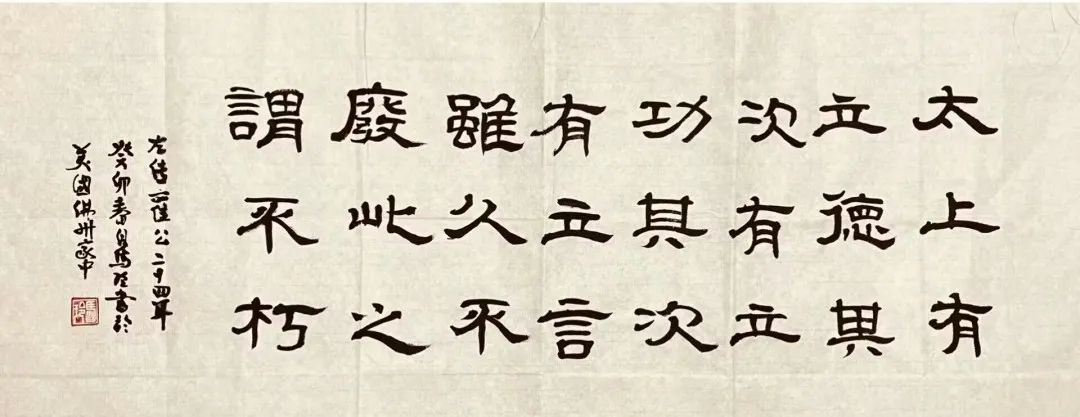 太上有
立德其
次有立
功其次
有立言
雖久不
廢此之
謂不朽
左传襄公二十四年
癸卯春日馬書於
美國佛州家中